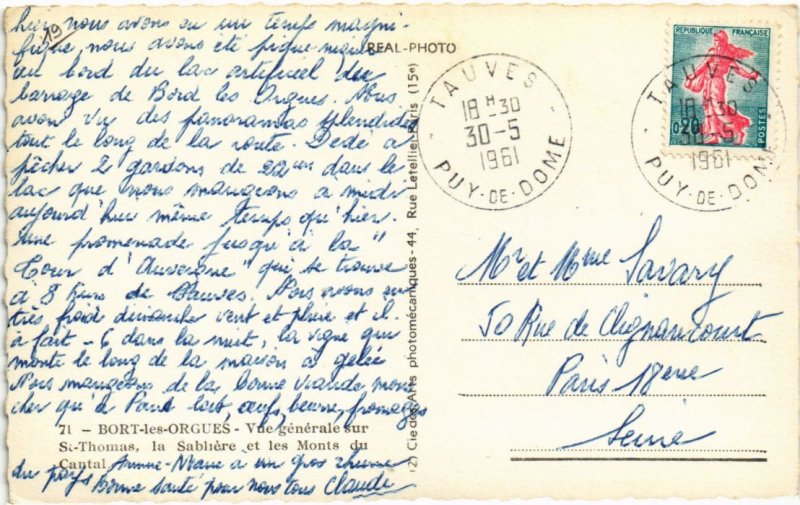 19
hier nous avons eu un temps magni-
fique, nous avons été pique niquer
au bord du lac artificiel du
barrage de Bord les Orgues. Nous
avons vu des panoramas splendides
tout le long de la route. Dédé a
pêcher 2 gardons de 22 cm dans le
lac que nous mangeons à midi
aujourd'hui même temps qu'hier.
une promenade jusqu'à la "
Tour d'Auvergne" qui se trouve
à 8 kms de Tauves. Nous avons eu
très froid dimanche vent et pluie et il
a fait - 6 dans la nuit, la vigne qui
monte le long de la maison a gelée
Nous mangeons de la bonne viande moins
cher qu'à Paris lait, œufs, beurre, fromages
71 - BORT-les-ORGUES - Vue générale sur
St-Thomas, la Sablière et les Monts du
Cantal
du pays Anne-Marie a un gros rhume
Bonne santé pour vous tous Claude
REAL-PHOTO
(2) Cie des Arts photomécaniques - 44, Rue Letellier, Paris (15e)
TAUVES
18 H 30
30-5
1961
PUY-DE-DOME
RÉPUBLIQUE FRANÇAISE
0,20
POSTES
TAUVES
18 H 30
30-5
1961
PUY-DE-DOME
Mr et Mme Savary
50 Rue de Clignancourt
Paris 18ème
Seine